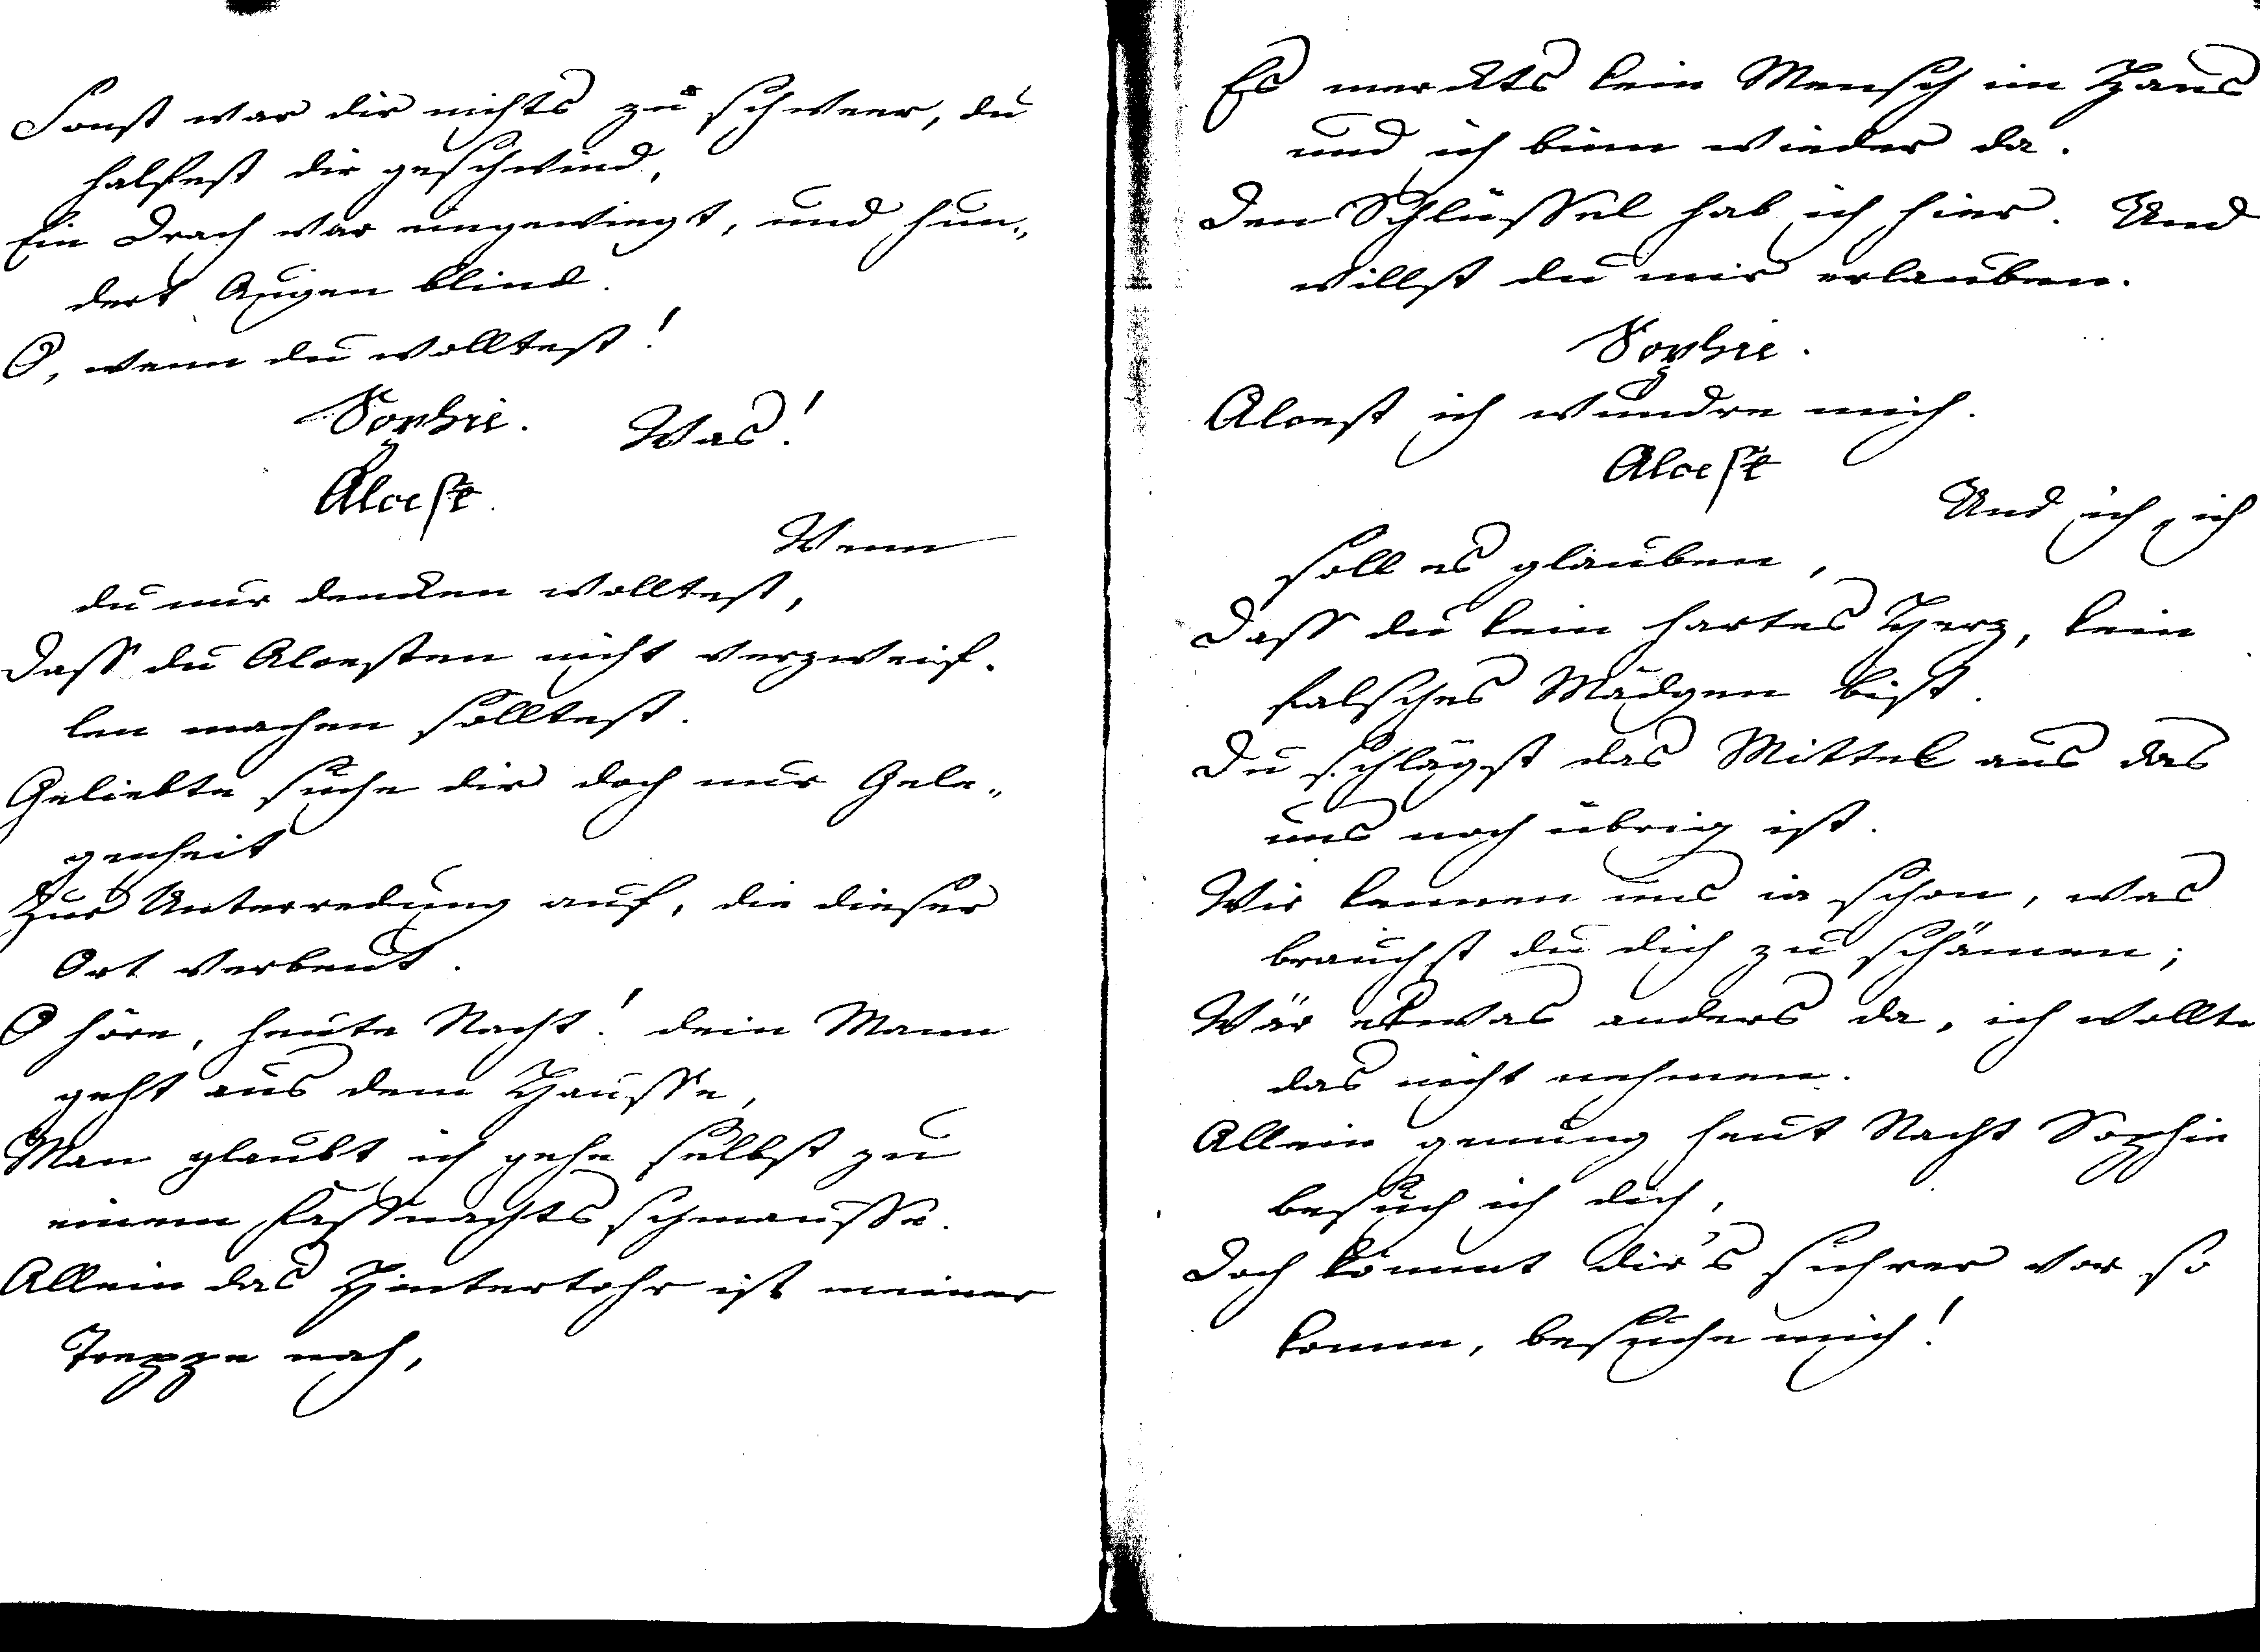 Sonst war dir nichts zu schweer, du
halfest dir geschwind,
Ein Drach war eingewiegt, und hun„
dert Augen blind.
O, wenn du wolltest!
Sophie. Was!
Alcest.
Wenn
du nur dencken wolltest,
Dass du Alcesten nicht verzweif„
len machen solltest.
Geliebte suche dir doch nur Gele„
genheit
Zur Unterredung auf, die dieser
Ort verbeut.
O höre, heute Nacht! dein Mann
geht aus dem Hausse,
Man glaubt ich gehe selbst zu
einem Fassnachts schmausse.
Allein das Hintertohr ist meiner
Treppe nah,
Es merckts kein Mensch im Haus
und ich binn wieder da.
Den Schlüssel hab ich hier. Und
willst du mir erlauben.
Sophie.
Alcest ich wundre mich.
Alcest
Und ich, ich
soll es glauben,
Dass du kein hartes Herz, kein
falsches Mädgen bist.
Du schlägst das Mittel aus das
uns noch übrig ist.
Wir kennen uns ia schon, was
brauchst du dich zu schämen;
Wär etwas anders da, ich wollte
das nicht nehmen.
Allein genung heut Nacht Sophie
besuch ich dich,
Doch kömmt dir's sichrer vor so
komm, besuche mich!